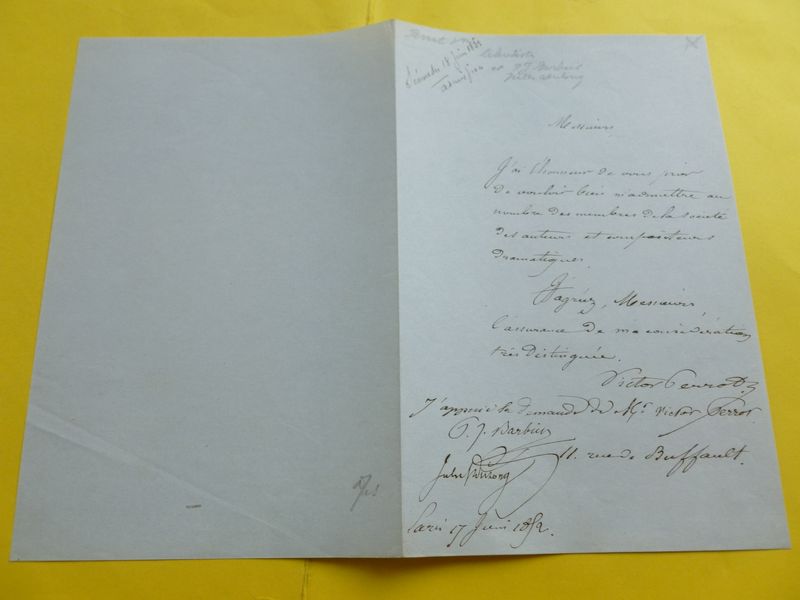 Séance du 18 juin 1852
admission
Messieurs
J'ai l'honneur de vous prier
de vouloir bien m'admettre au
nombre des membres de la société
des auteurs et compositeurs
dramatiques.
agréez, Messieurs,
l'assurance de ma considération
très distinguée.
Victor Perrot
J'appuie la demande de Mr. Victor Perrot
P. J. Barbier
11. rue de Buffault.
Jules
Paris 17 Juin 1852.